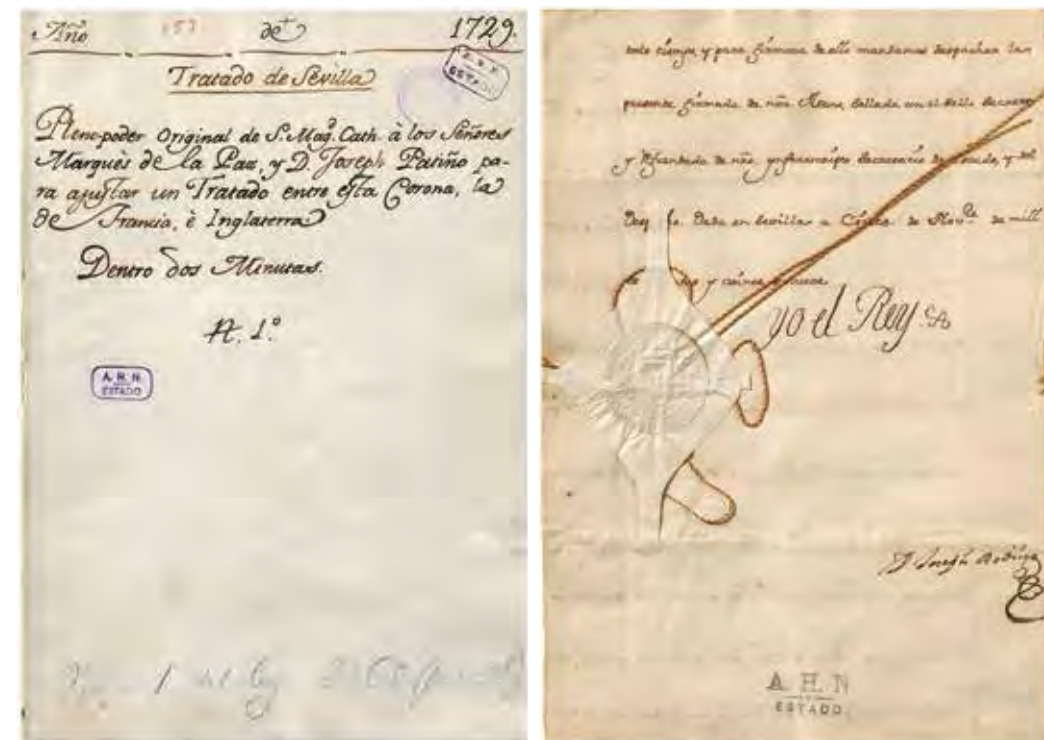 Año 157 de 1729.
A. H. N.
ESTADO
Tratado de Sevilla
Pleno-poder Original de S. Mag. Cath. à los Señores
Marqués de la Paz, y D. Joseph Patiño pa-
ra ajustar un Tratado entre esta Corona, la
de Francia, è Inglaterra
Dentro dos Minutas.
N. 1.º
A. H. N.
ESTADO
1 del
y para firmeza de ello mandamos despachar la
presente firmada de nra. Mano, Sellada con el Sello Secreto
y Refrendada de nro. infraescripto Secretario de estado, y del
Dada en Sevilla a de Nov.re de mill
y nueve.
yo el Rey
D. Joseph
A. H. N
ESTADO